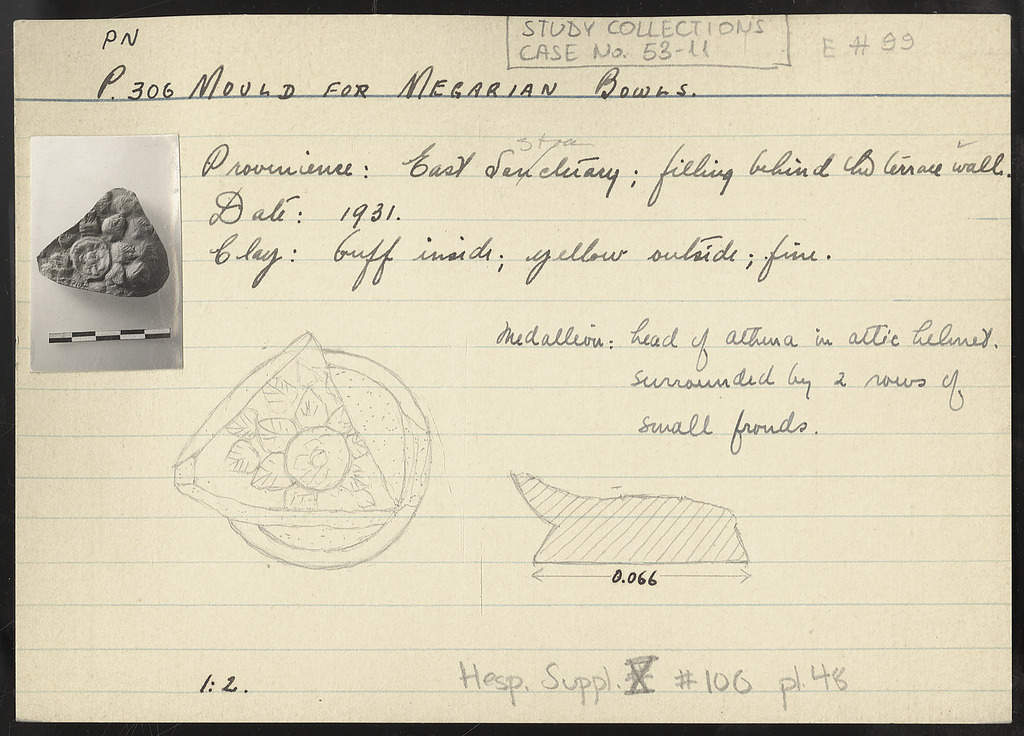 PN
STUDY COLLECTIONS
CASE No. 53-11
E # 99
P. 306 MOULD FOR MEGARIAN BOWLS.
stoa
Provenience: East Sanctuary; filling behind the terrace wall.
Date: 1931.
Clay: buff inside; yellow outside; fine.
Medallion: head of athena in attic helmet.
surrounded by 2 rows of
small fronds.
0.066
1:2.
Hesp. Suppl. X # 106 pl. 48